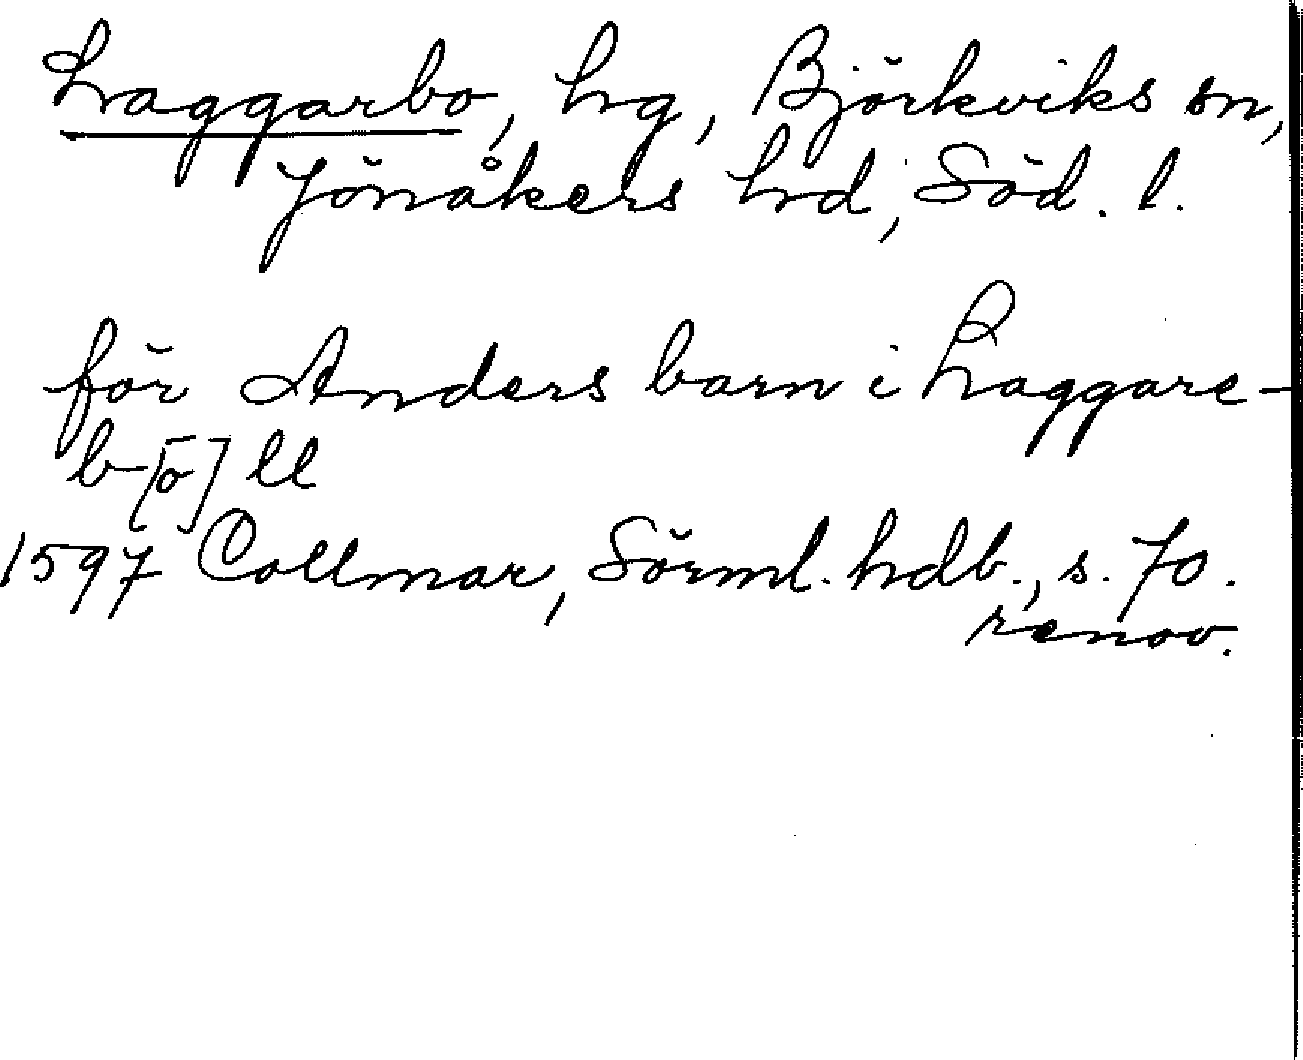 Haggarbo, hg, Björkviks sn,
Jönåkers hd, Söd. l.
för Anders barn i Haggare-
b[o]ll
1597 Collmar, Sörml. hdb., s. 70.
renov.